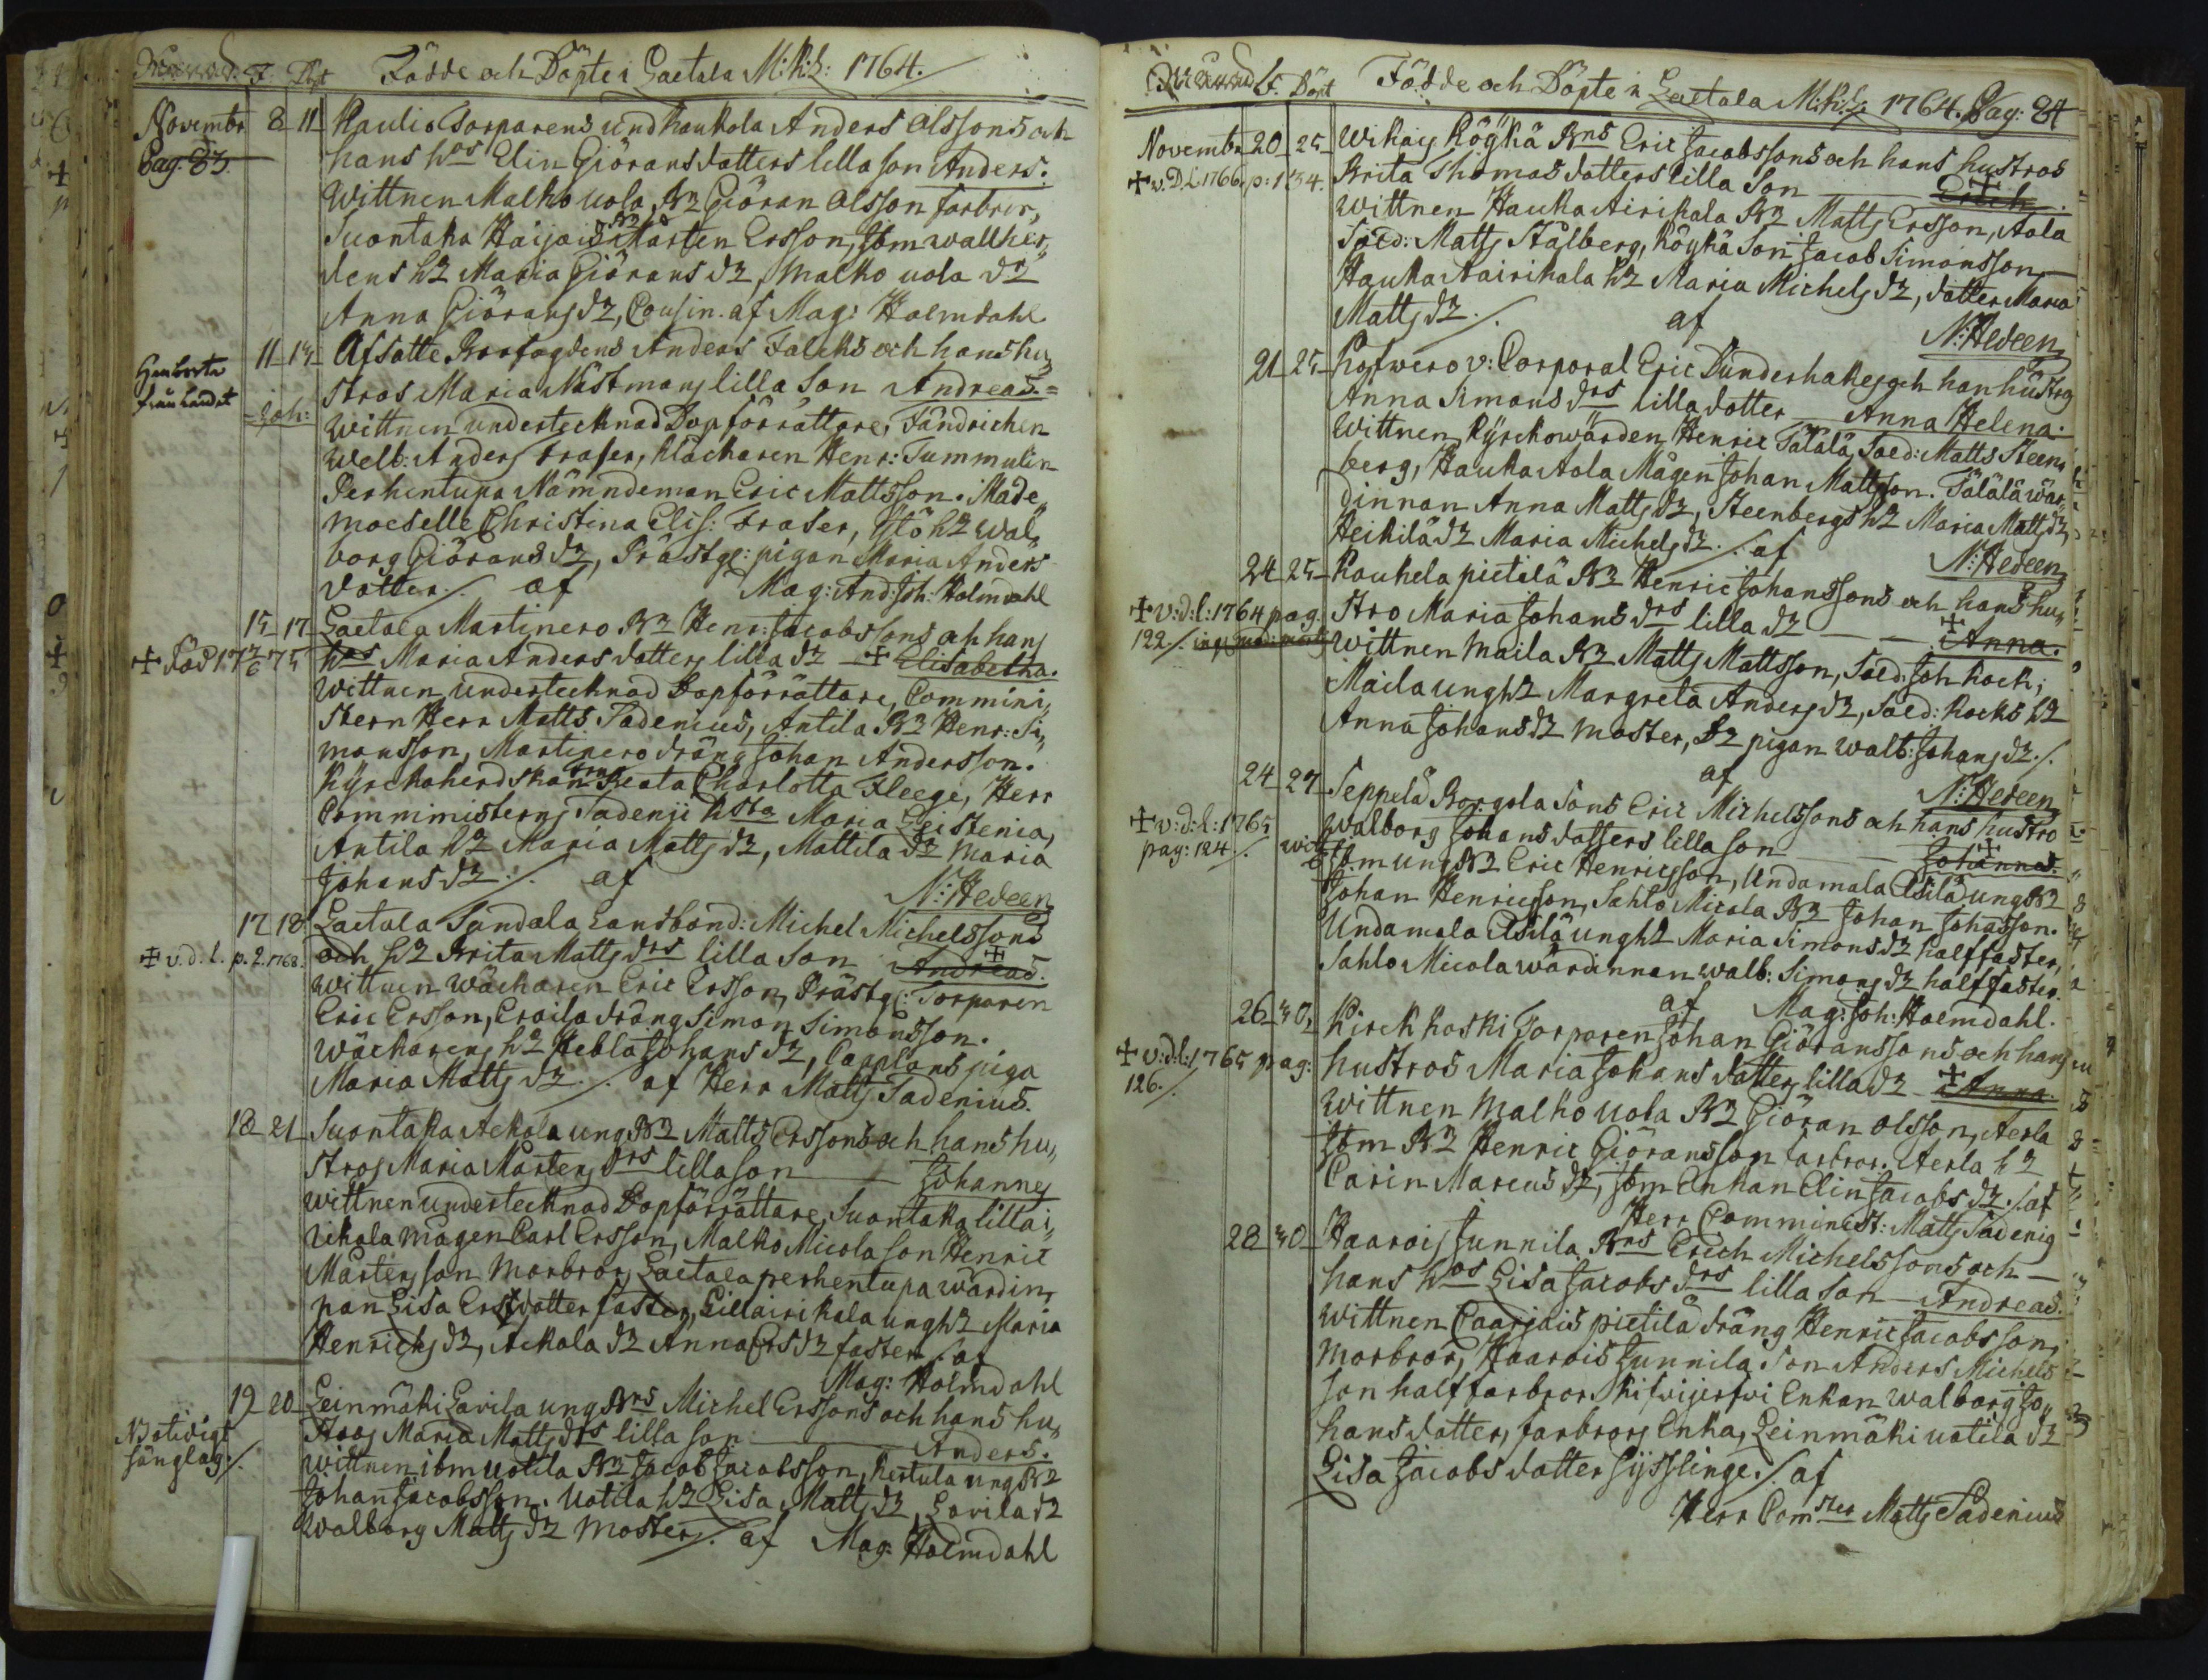 F. Döpt Födde och Döpte i Laetala M:K:L: 1764.
Novembr 8 11 Kaulio Torparens und Kaukola Anders Olssons och
Pag. 83. hans hos Elin Giöransdatters lilla son Anders.
Wittnen Malko uola Br Giöran Olsson farbror,
Suontaka Haijais Br Mårten Ersson, Ibm wallher,,
dens hu Maria Giörans dr, Malko uola dr
Anna Giörans dr, Cousin. af Mag: Holmdahl
11 14 Afsatte Borfogdens Anders Falcks och hans hu,,
stros Maria Nästmans lilla Son Andreas =
=Joh:
Wittnen undertecknad Dopförrättare, Fändrichen
Welb: Anders Fraser, Klåckaren Henr: Tummulin
Perhentupa Nämndeman Eric Mattsson. Made
moeselle Christina Elis: Fraser, hu Wal,,
borg Giörans dr, Prästg: pigan Maria Anders
dotter ./. af Mag: And: Joh: Holmdahl
15 17 Laetala Martinero Br Henr: Jacobssons och hans
hos Maria Anders datters lilla dr Elisabetha.
Wittnen undertecknad Dopförrättare, Commini,,
stern Herr Matts Tadenius, Antila Br Henr: Si,,
monsson, Martinero dräng Johan Andersson.
Kyrckoherdskan Fru Beata Charlotta Fleege, Herr
Comministerns Tadenii hsta Maria Leistenia,
Antila hu Maria Matts dr, Mattila dr Maria
Johans dr ./. af N: Hedeen
17 18 Laetala Sundala Landbond: Michel Michelssons
v. d. l. p. 2. 1768. och hu Brita Matts drs lilla son Andreas.
Wittnen wäckaren Eric Ersson, Prästg: Torparen
Eric Ersson, Eraila dräng Simon Simonsson.
Wäckarens hu Hebla Johans dr, Capplans piga
Maria Matts dr ./. af Herr Matts Tadenius.
18 21 Suontaka Ackola ung Br Matts Erssons och hans hu,,
stros Maria Mårtens drs lilla son Johannes
Wittnen undertecknad Dopförrättare, Suontaka lilla i,,
rikala Mågen Carl Ersson, Malko Micola son Henric
Mårtens son Morbror, Laetala perhentupa wärdin,,
nan Lisa Ersdotter faster, Lillairikala ung hu Maria
Henrichs dr, Ackola dr Anna Ers dr faster ./. af
Mag: Holmdahl
19 20 Leinmäki Lavila ung Brs Michel Erssons och hans hu,,
Nbotidigt stros Maria Matts drs lilla son Anders.
sänglag ./. Wittnen ibm Uotila Br Jacob Jacobsson, Kestula ung Br
Johan Jacobsson. Uotila hu Lisa Matts dr, Lavila dr
Walborg Matts dr Moster ./. af Mag: Holmdahl
Döpt Födde och Döpte i Laetala M:K:L: 1764. Pag: 84
Novembr 20 25 Wikais Köykä Brs Eric Jacobssons och hans hustros
v. D. L. 1766. p: 134. Brita Thomas datters lilla Son Erich.
Wittnen Hauka Airikala Br Matts Ersson, Aola
Soed: Matts Stålberg, Köykä Son Jacob Simonsson,
Hauka Aairikala hu Maria Michels dr, datter Maria
Matts dr ./. af N: Hedeen
21 25 v: Corporal Eric Dunderhakes och hans hustros
Anna Simons drs lilla dotter Anna Helena.
Wittnen Kyrckowärden Henric Tälälä, Soed: Matts Steen,,
berg, Hauka Aola Mågen Johan Mattsson. Tälälä wär,,
dinnan Anna Matts dr, Steenbergs hu Maria Matts dr,
Heikilä dr Maria Michels dr ./. af N: Hedeen
24 25 Koukela pietilä Br Henric Johanssons och hans hu,,
v: d: l: 1764 pag. stro Maria Johans drs lilla dr Anna.
122 ./. Wittnen Maila Br Matts Mattsson, Soed: Joh Kock;
Maila ung hu Margreta Anders dr, Soed: Kocks hu
Anna Johans dr Moster, pigan Walb: Johans dr ./.
af N: Hedeen
24 27 Seppälä Borgola Sons Eric Michelssons och hans hustro
v: d: l: 1765 Walborg Johans datters lilla son Johannes.
pag: 124 ./. Wit Ibm ung Br Eric Henricsson, Undamala Elsilä ung Br
Johan Henricsson, Sahlo Micola Br Johan Johasson.
Undamala Elsilä ung hu Maria Simons dr halffaster,
Sahlo Micola wärdinnan Walb: Simons dr halffaster.
af Mag: Joh: Holmdahl.
26 30 Kirckkoski Torparen Johan Giöranssons och hans
v: d: l: 1765 pag: hustros Maria Johans datters lilla dr Anna.
126. ./. Wittnen Malko Uola Br Giöran Olsson, Aerla
Ibm Br Henric Giöransson farbror. Aerla hu
Carin Marcus dr, Ibm Enkan Elin Jacobs dr ./. af
Herr Comminist: Matts Tadenig
28 30 Haarois Junnila Brs Erich Michelssons och
hans hos Lisa Jacobs drs lilla son Andreas.
Wittnen Caarjais pietilä dräng Henric Jacobsson,
Morbror, Haarois Junnila Son Anders Michels
son halffarbror. Enkan Walborg Jo,,
hansdatter, farbrors Enka, Leinmäki uotila dr
Lisa Jacobs datter Sysslinge ./. af
Herr Comster Matts Tadenius